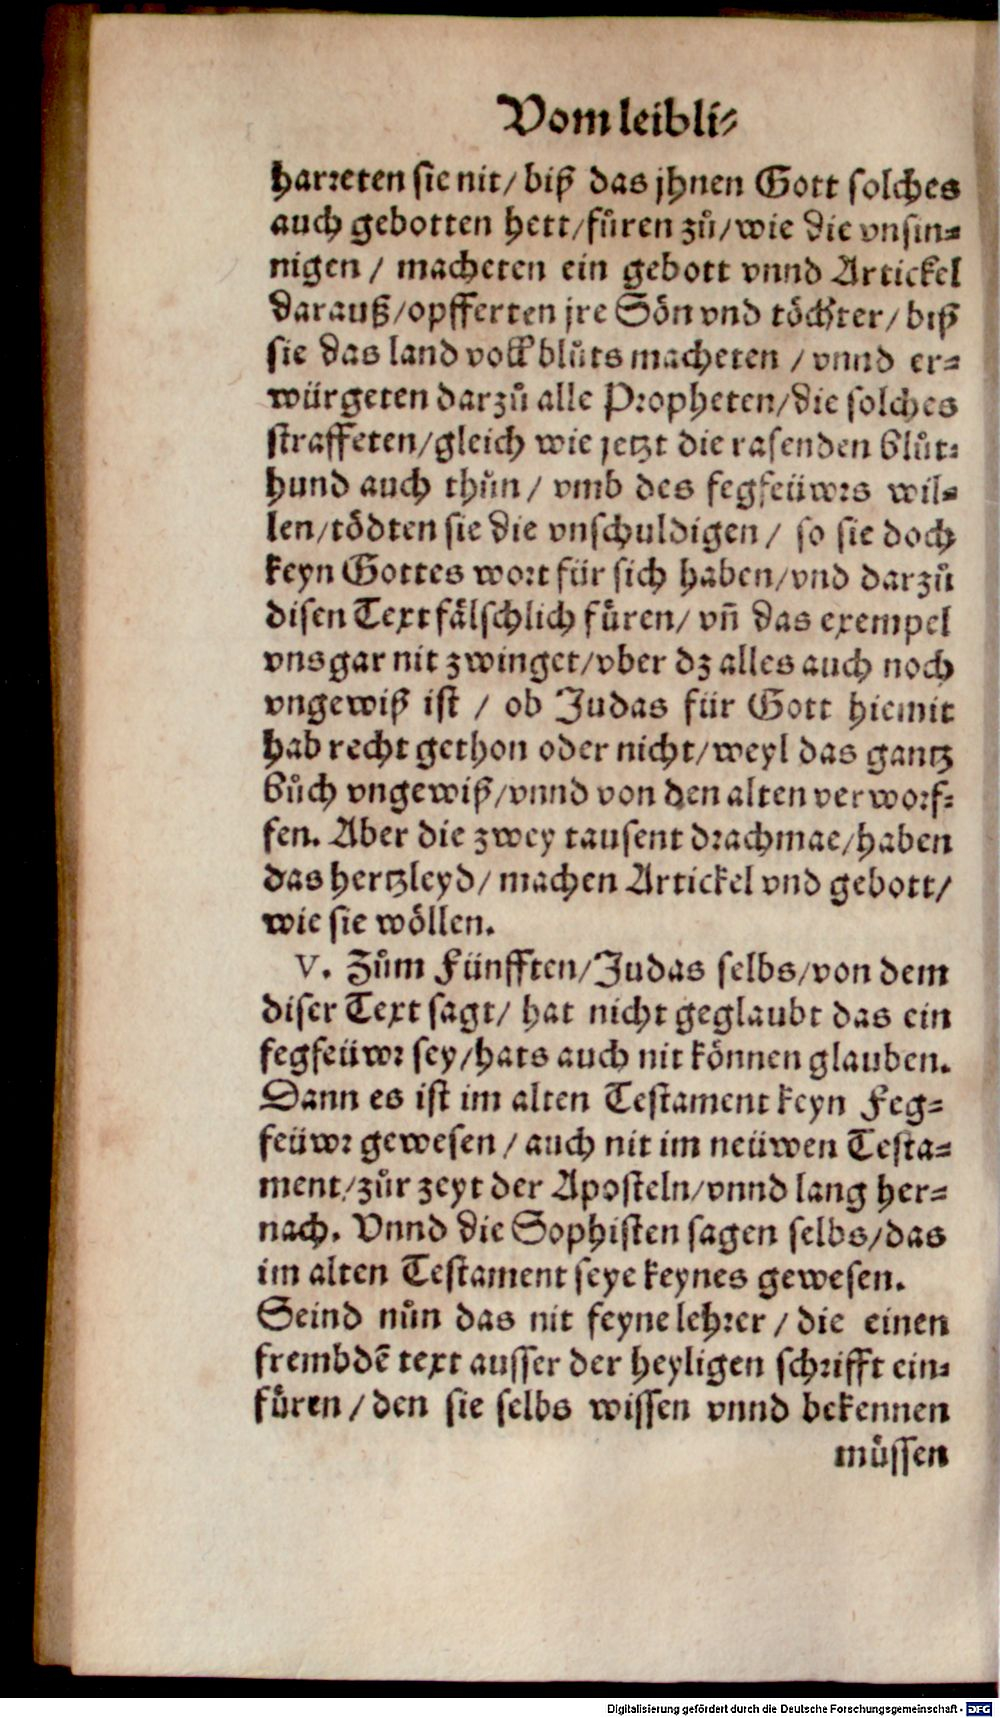 Vom leibli-
harreten sie nit/ biß das jhnen Gott solches
auch gebotten hett/fůren zů/wie die vnsin-
nigen / macheten ein gebott vnnd Artickel
darauß/opfferten jre Sön vnd töchter/ biß
sie das land voll blůts macheten / vnnd er-
würgeten darzů alle Propheten/die solches
straffeten/gleich wie jetzt die rasenden blůt-
hund auch thůn / vmb des fegfeüwrs wil-
len/tödten sie die vnschuldigen / so sie doch
keyn Gottes wort für sich haben/vnd darzů
disen Text fälschlich füren/ vñ das exempel
vns gar nit zwinget/vber dz alles auch noch
vngewiß ist / ob Judas für Gott hiemit
hab recht gethon oder nicht/weyl das gantz
bůch vngewiß/vnnd von den alten verworf-
fen. Aber die zwey tausent drachmae/haben
das hertzleyd/ machen Artickel vnd gebott/
wie sie wöllen.
V. Zům Fünfften/Judas selbs/von dem
diser Text sagt/ hat nicht geglaubt das ein
fegfeüwr sey/hats auch nit können glauben.
Dann es ist im alten Testament keyn Feg-
feüwr gewesen / auch nit im neüwen Testa-
ment/zůr zeyt der Aposteln/vnnd lang her-
nach. Vnnd die Sophisten sagen selbs/das
im alten Testament seye keynes gewesen.
Seind nůn das nit feyne lehrer / die einen
frembdẽ text ausser der heyligen schrifft ein-
füren / den sie selbs wissen vnnd bekennen
müssen
Digitalisierung gefördert durch die Deutsche Forschungsgemeinschaft - DFG